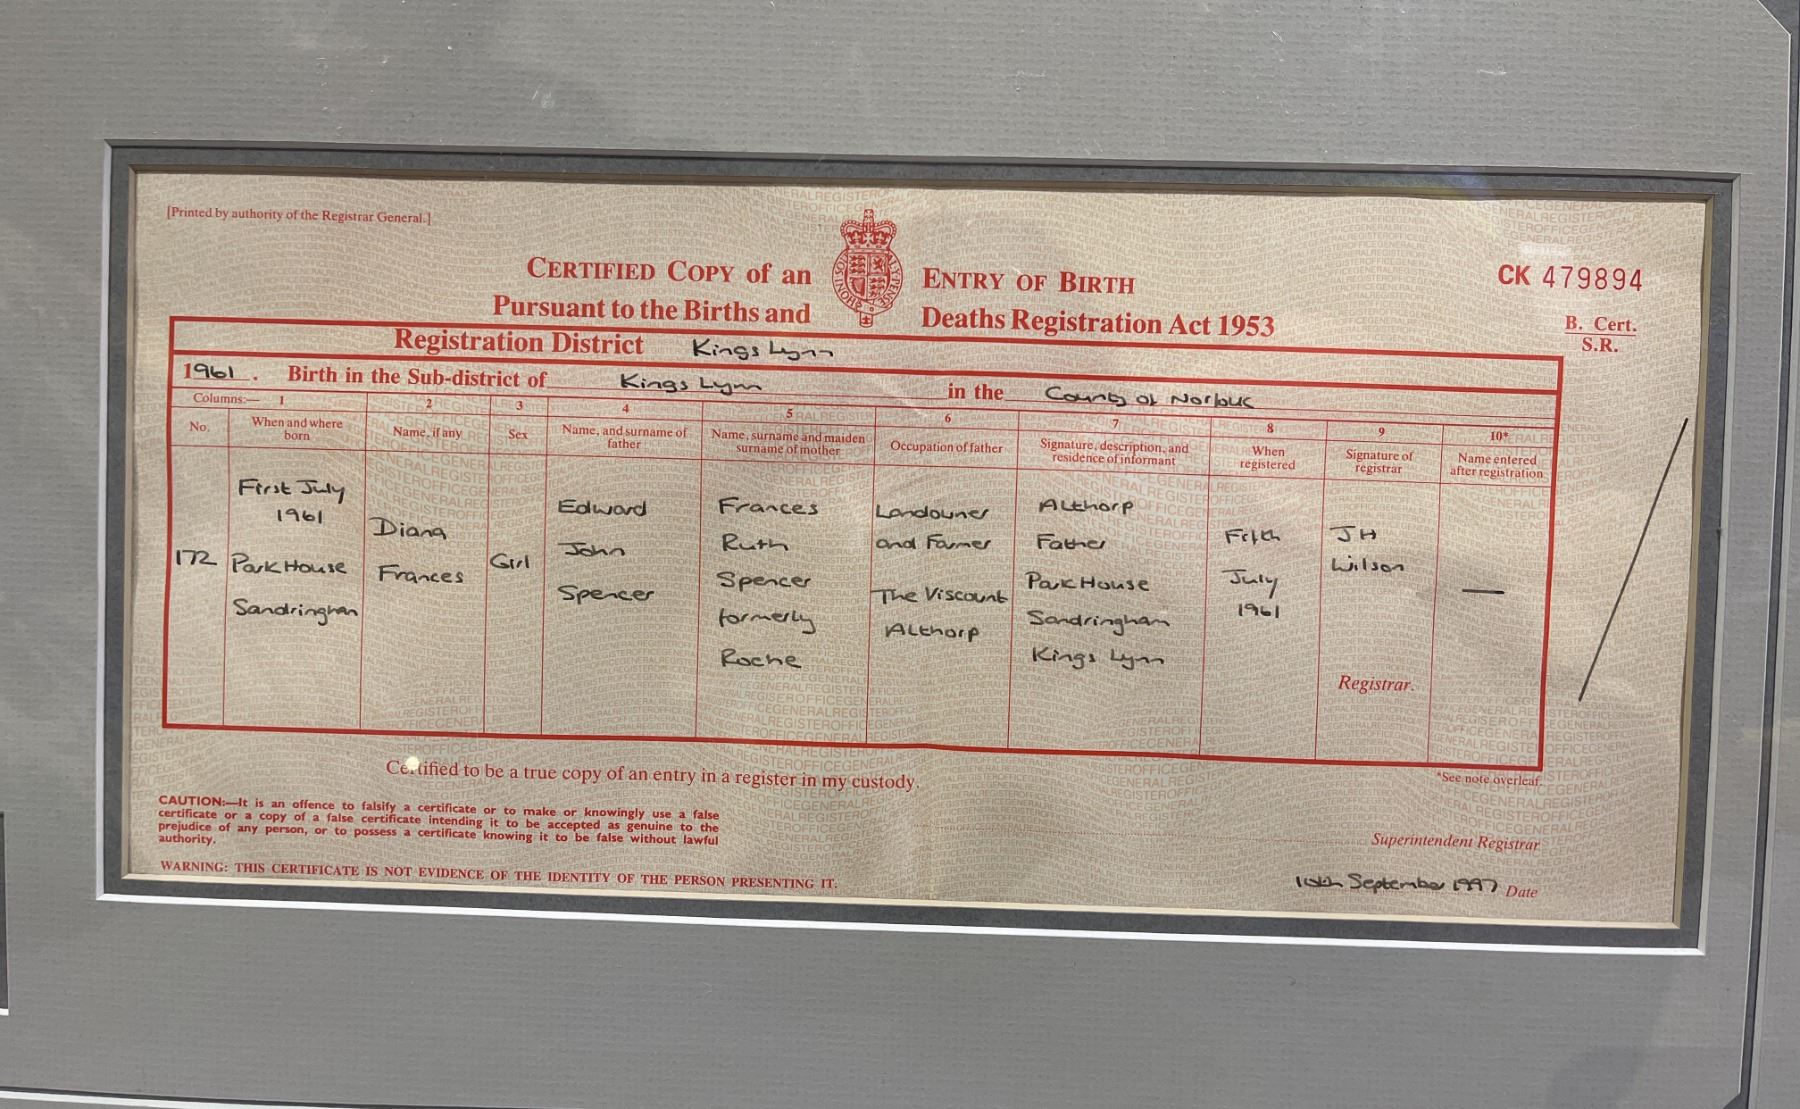 [Printed by authority of the Registrar General.]
CERTIFIED COPY of an ENTRY OF BIRTH
CK 479894
Pursuant to the Births and Deaths Registration Act 1953
B. Cert.
S.R.
Registration District Kings Lynn
1961. Birth in the Sub-district of Kings Lynn in the County of Norfolk
Columns:— 1 2 3 4 5 6 7 8 9 10*
No.
When and where
born
Name, if any
Sex
Name, and surname of
father
Name, surname and maiden
surname of mother
Occupation of father
Signature, description, and
residence of informant
When
registered
Signature of
registrar
Name entered
after registration
172
First July
1961
Park House
Sandringham
Diana
Frances
Girl
Edward
John
Spencer
Frances
Ruth
Spencer
formerly
Roche
Landowner
and Farmer
The Viscount
Althorp
Althorp
Father
Park House
Sandringham
Kings Lynn
Fifth
July
1961
JH
Wilson
Registrar.
—
Certified to be a true copy of an entry in a register in my custody.
*See note overleaf
CAUTION:—It is an offence to falsify a certificate or to make or knowingly use a false
certificate or a copy of a false certificate intending it to be accepted as genuine to the
prejudice of any person, or to possess a certificate knowing it to be false without lawful
authority.
Superintendent Registrar
WARNING: THIS CERTIFICATE IS NOT EVIDENCE OF THE IDENTITY OF THE PERSON PRESENTING IT.
September 1997 Date